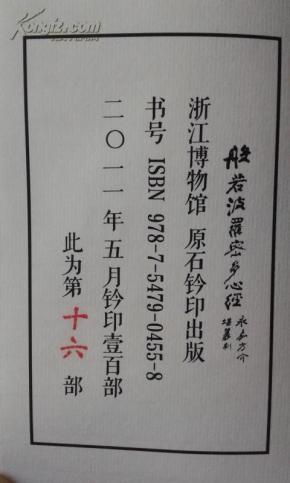 般若波羅密多心經
永嘉方介
堪篆刻
浙江博物馆 原石钤印出版
书号 ISBN 978-7-5479-0455-8
二〇一一年五月钤印壹百部
此为第十六部